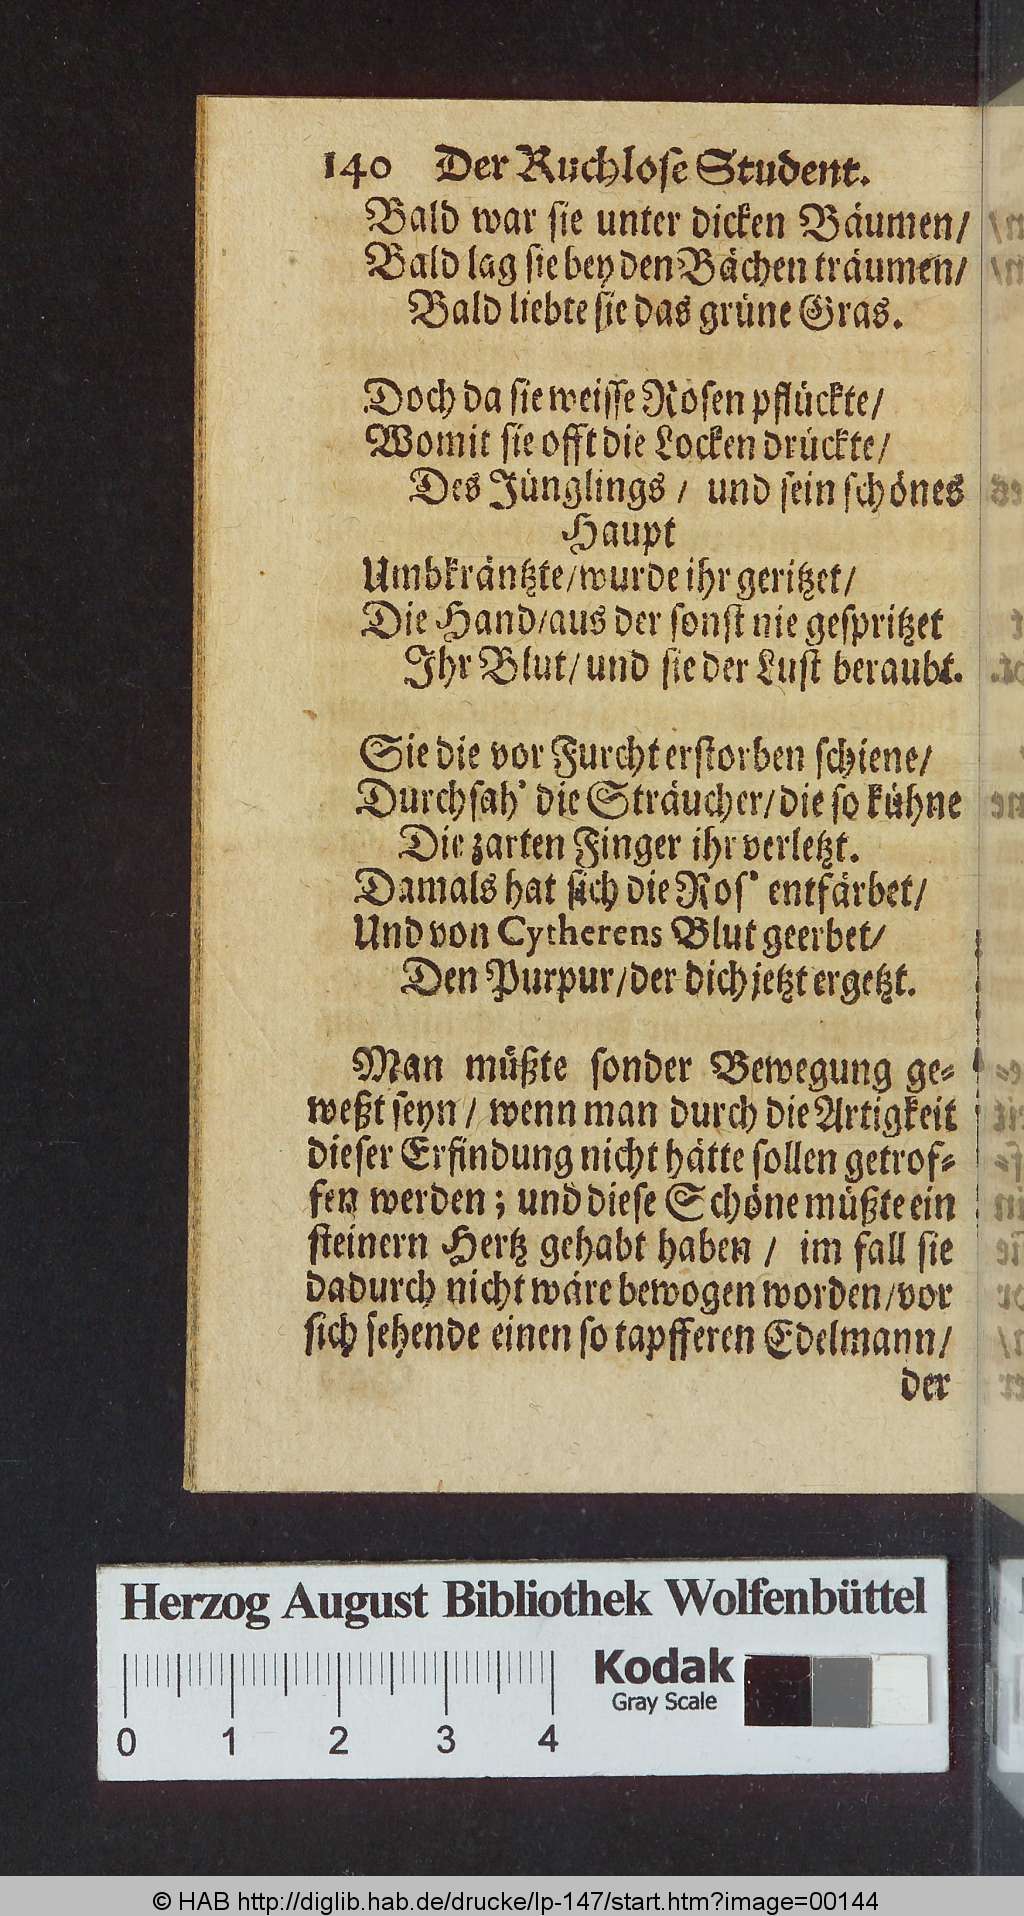 140 Der Ruchlose Student.
Bald war sie unter dicken Bäumen/
Bald lag sie bey den Bächen träumen/
Bald liebte sie das grüne Gras.
Doch da sie weisse Rosen pflückte/
Womit sie offt die Locken drückte/
Des Jünglings / und sein schönes
Haupt
Umbkräntzte/wurde ihr geritzet/
Die Hand/aus der sonst nie gespritzet
Ihr Blut/ und sie der Lust beraubt.
Sie die vor Furcht erstorben schiene/
Durchsah' die Sträucher/die so kühne
Die zarten Finger ihr verletzt.
Damals hat sich die Ros' entfärbet/
Und von Cytherens Blut geerbet/
Den Purpur/der dich jetzt ergetzt.
Man müßte sonder Bewegung ge-
weßt seyn / wenn man durch die Artigkeit
dieser Erfindung nicht hätte sollen getrof-
fen werden; und diese Schöne müßte ein
steinern Hertz gehabt haben / im fall sie
dadurch nicht wäre bewogen worden/vor
sich sehende einen so tapfferen Edelmann/
der
Herzog August Bibliothek Wolfenbüttel
Kodak
Gray Scale
0 1 2 3 4
© HAB http://diglib.hab.de/drucke/lp-147/start.htm?image=00144